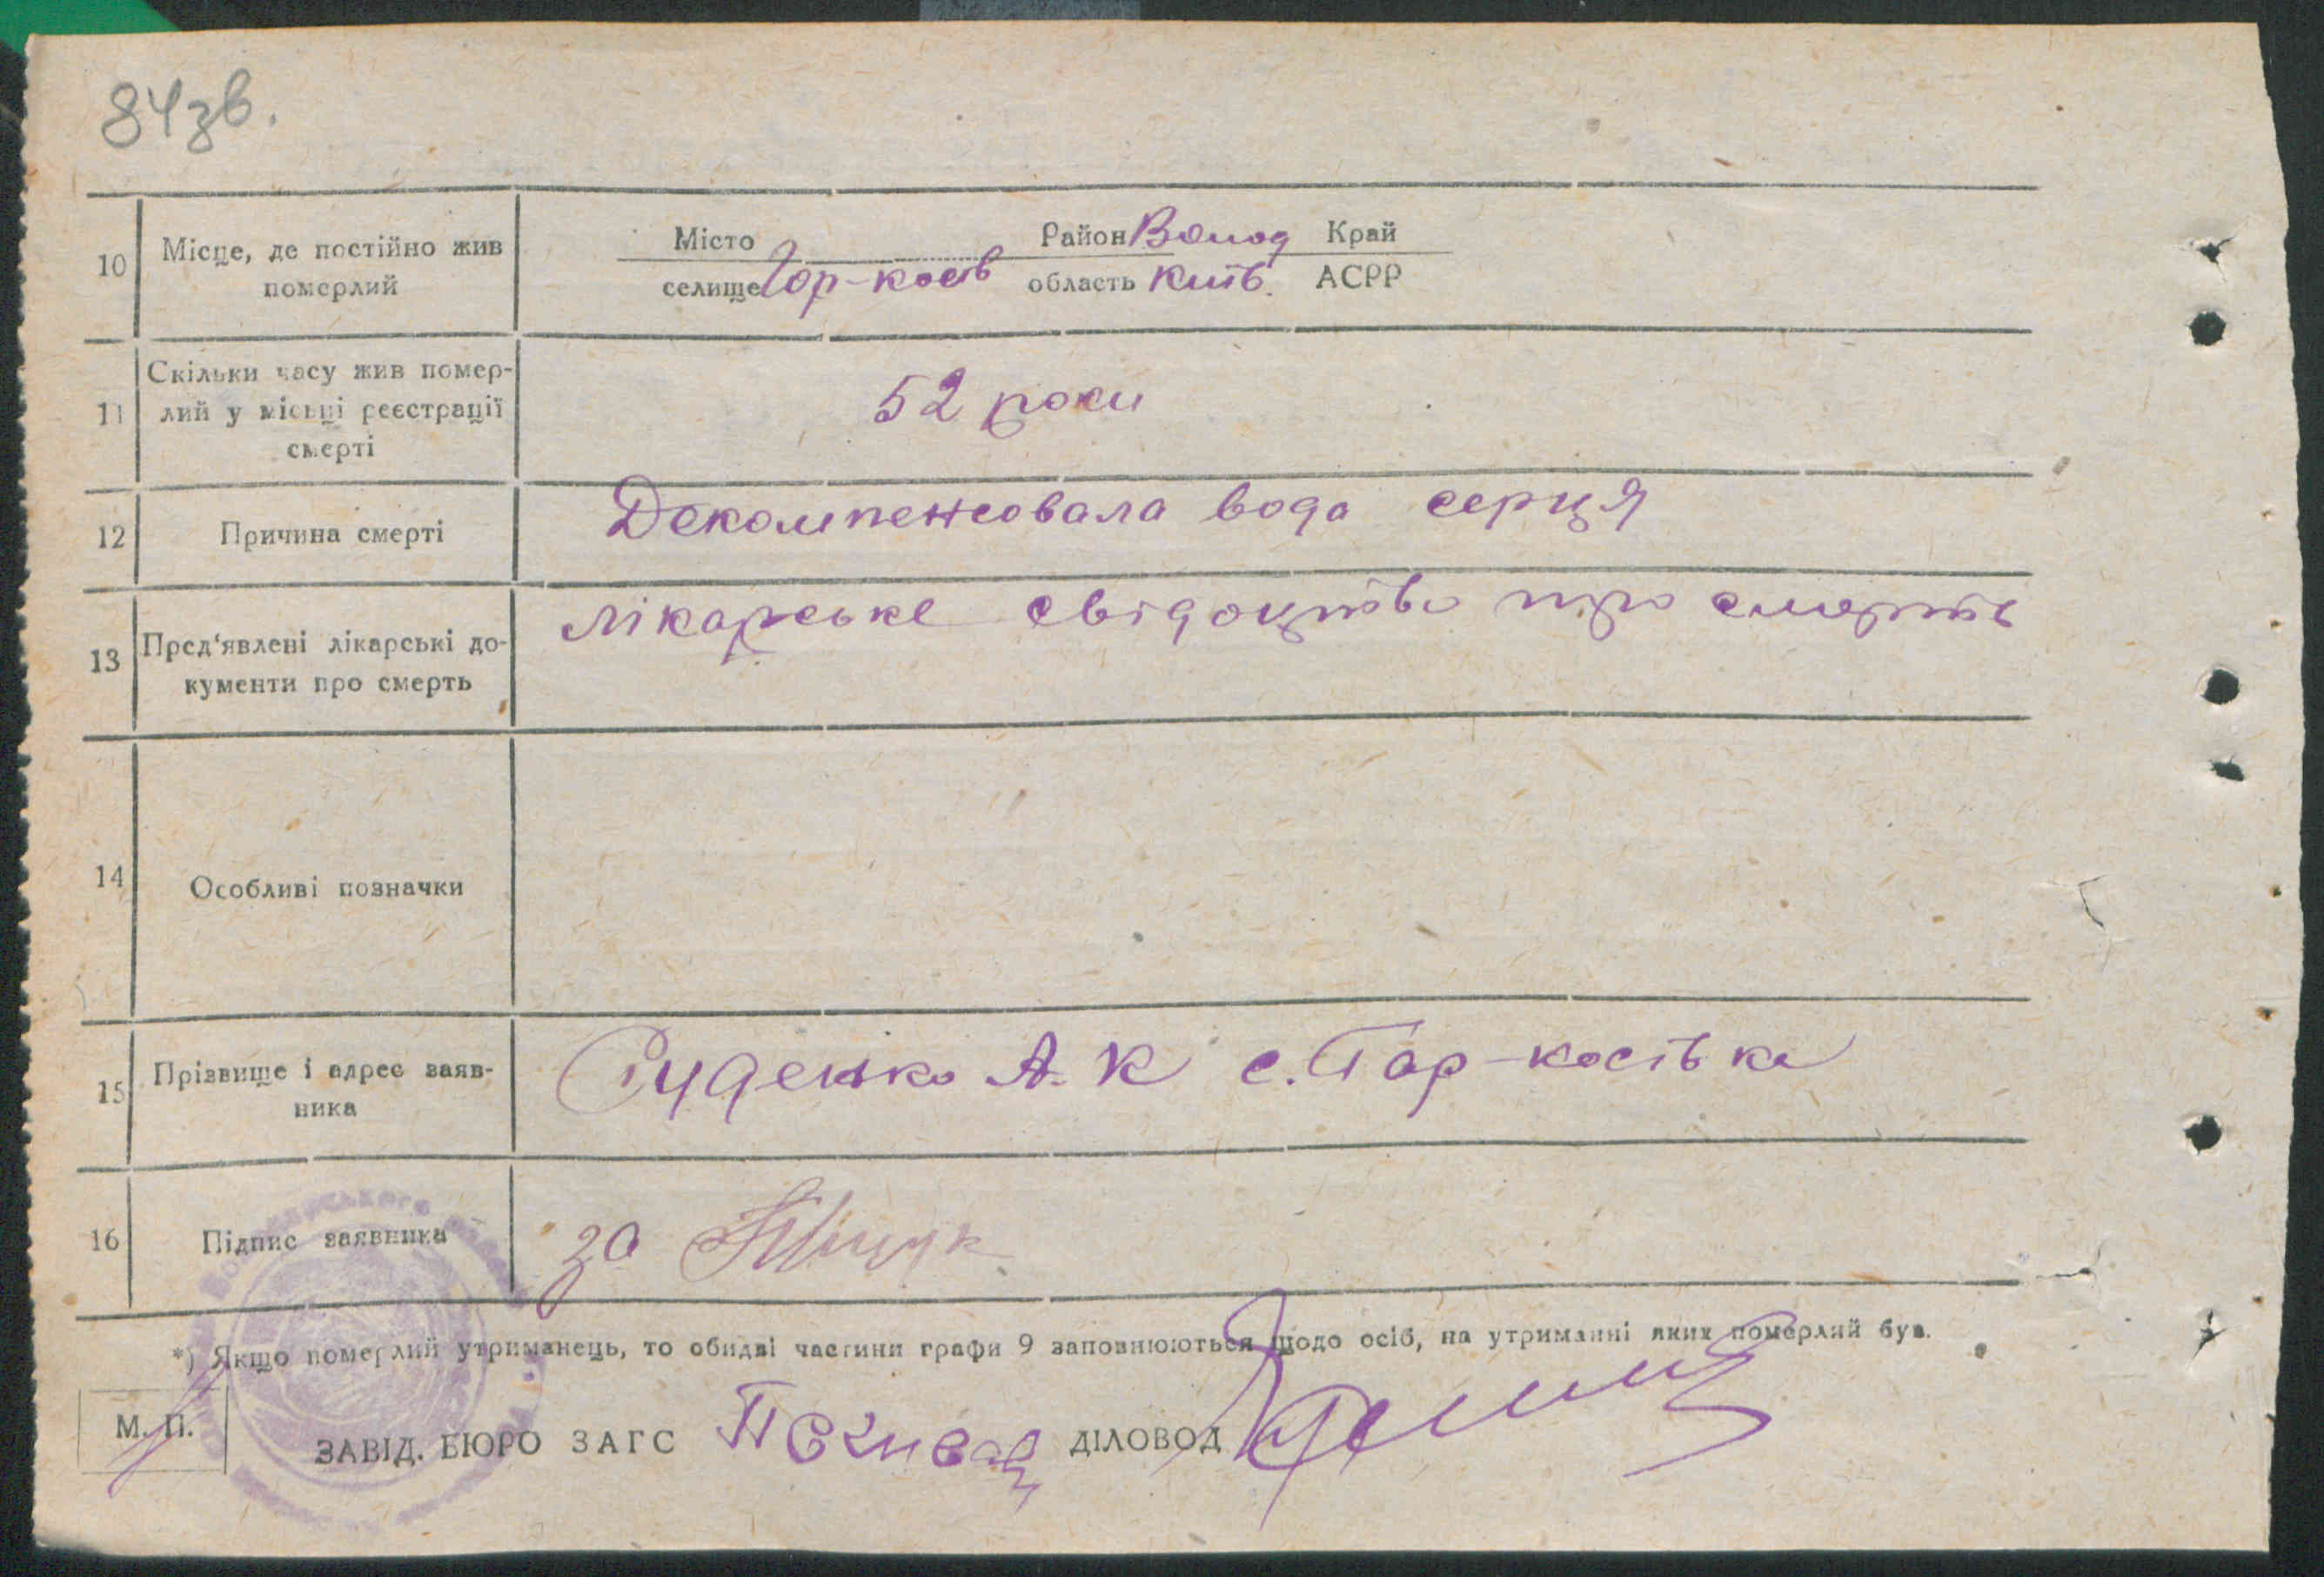 84зв.
10 Місце, де постійно жив померлий
Місто селище Гор-косів Район Волод область Київ. Край АСРР
11 Скільки часу жив помер-
лий у місьці реєстрації
смерті
52 роки
12 Причина смерті Декомпенсовала вода серця
13 Пред'явлені лікарські до-
кументи про смерть
лікарське свідоцтво про смерть
14 Особливі позначки
15 Прізвище і адрес заяв-
ника
Руденко А. К с. Гор-косівка
16 Підпис заявника за
*) Якщо померлий утриманець, то обидві частини графи 9 заповнюються щодо осіб, на утриманні яких померлий був.
М. П.
ЗАВІД. БЮРО ЗАГС ДІЛОВОД